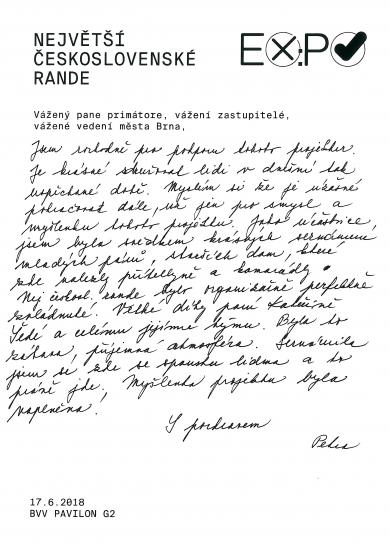 NEJVĚTŠÍ
ČESKOSLOVENSKÉ
RANDE
EXPO
Vážený pane primátore, vážení zastupitelé,
vážené vedení města Brna,
Jsem rozhodně pro podporu tohoto projektu.
Je krásné seznamovat lidi v dnešní tak
uspěchané době. Myslím si že je úžasné
pokračovat dále, už jen pro smysl a
myšlenku tohoto projektu. Jako účastnice,
jsem byla svědkem krásných seznámení
mladých párů, starších dam, které
zde nalezly přítelkyně a kamarádky.
Nej českosl. rande bylo organizačně perfektně
zvládnuté. Velké díky paní Kateřině
Šedé a celému jejímu týmu. Byla to
zábava, příjemná atmosféra. Seznámila
jsem se zde se spoustu lidma a to
právě jde. Myšlenka projektu byla
naplněna!
S pozdravem
Petra
17.6.2018
BVV PAVILON G2